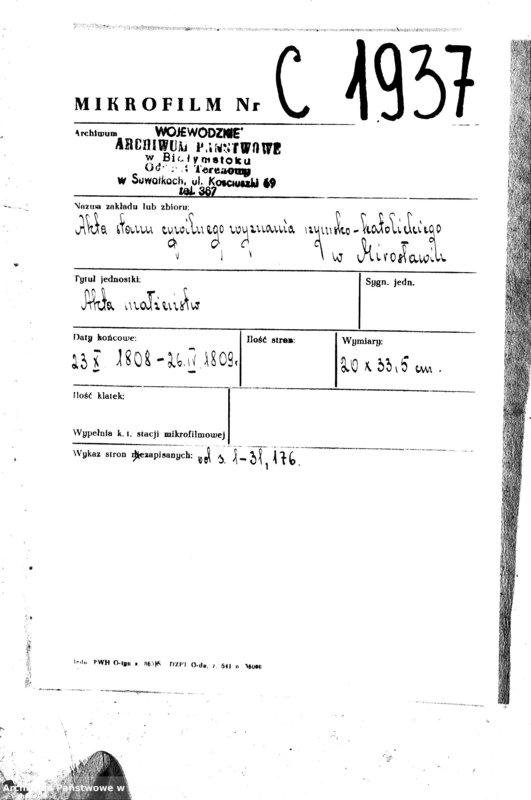 C 1937
MIKROFILM Nr
Archiwum
WOJEWÓDZKIE
ARCHIWUM PAŃSTWOWE
w Białymstoku
Oddział Terenowy
w Suwałkach, ul. Kościuszki 69
tel. 367
Nazwa zakładu lub zbioru:
Akta stanu cywilnego wyznania rzymsko-katolickiego
w Mirosławiu
Tytuł jednostki:
Akta małżeństw
Sygn. jedn.
Daty końcowe:
23 X 1808 – 26 IV 1809 r
Ilość stron:
Wymiary:
20 x 33,5 cm.
Ilość klatek:
Wypełnia k. t. stacji mikrofilmowej
Wykaz stron niezapisanych: od s. 1-31, 176.
PWH O-łga z.
DZPT. O-da, z. 641 n.
Archiwum Państwowe w